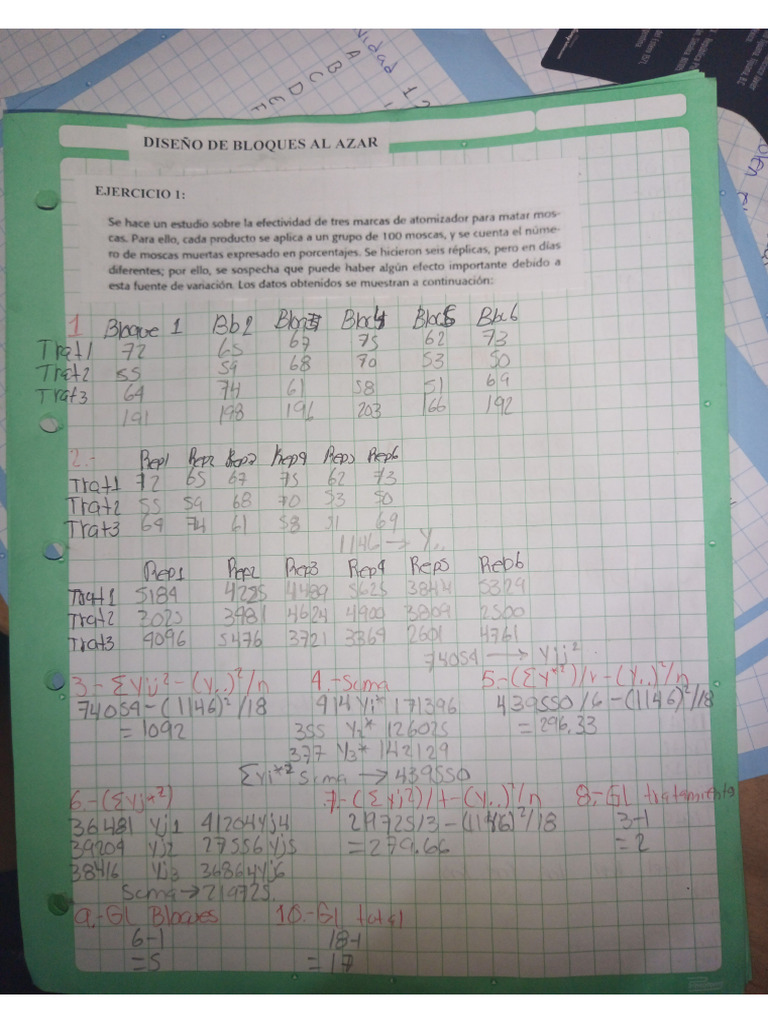 DISEÑO DE BLOQUES AL AZAR
EJERCICIO 1:
Se hace un estudio sobre la efectividad de tres marcas de atomizador para matar mos-
cas. Para ello, cada producto se aplica a un grupo de 100 moscas, y se cuenta el núme-
ro de moscas muertas expresado en porcentajes. Se hicieron seis réplicas, pero en días
diferentes; por ello, se sospecha que puede haber algún efecto importante debido a
esta fuente de variación. Los datos obtenidos se muestran a continuación:
1 Bloque 1 Bb2 Bloc3 Bloc4 Bloc5 Blc6
Trat1 72 65 67 75 62 73
Trat2 55 59 68 70 53 50
Trat3 64 74 61 58 51 69
191 198 196 203 166 192
2.- Rep1 Rep2 Rep3 Rep4 Rep5 Rep6
Trat1 72 65 67 75 62 73
Trat2 55 59 68 70 53 50
Trat3 64 74 61 58 51 69
1146 → Y..
Rep1 Rep2 Rep3 Rep4 Rep5 Rep6
Trat1 5184 4225 4489 5625 3844 5329
Trat2 3025 3481 4624 4900 2809 2500
Trat3 4096 5476 3721 3364 2601 4761
74054 → Yij²
3-ΣYij²-(Y..)²/n 4.-Scma 5-(ΣY*²)/r-(Y..)²/n
74054-(1146)²/18 414 Yi* 171396 439550/6-(1146)²/18
=1092 355 Y2* 126025 =296.33
377 Y3* 142129
ΣYi*² Scma → 439550
6.-(ΣYj*²) 7-(ΣYj²)/t-(Y..)²/n 8.-Gl tratamiento
36481 Yj1 41204Yj4 219725/3-(1146)²/18 3-1
39204 Yj2 27556Yj5 =279.66 =2
38416 Yj3 36864Yj6
Scma→219725.
9.-Gl Bloques 10.-Gl total
6-1 18-1
=5 =17